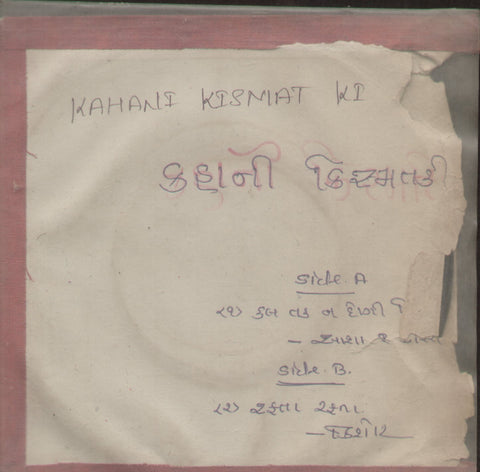 KAHANI KISMAT KI
કહાની કિસ્મતકી
Side. A
(૧) કબ તક ન દેગી દિ
- આશા
Side. B.
(૨) રફતા રફતા
- કિશોર